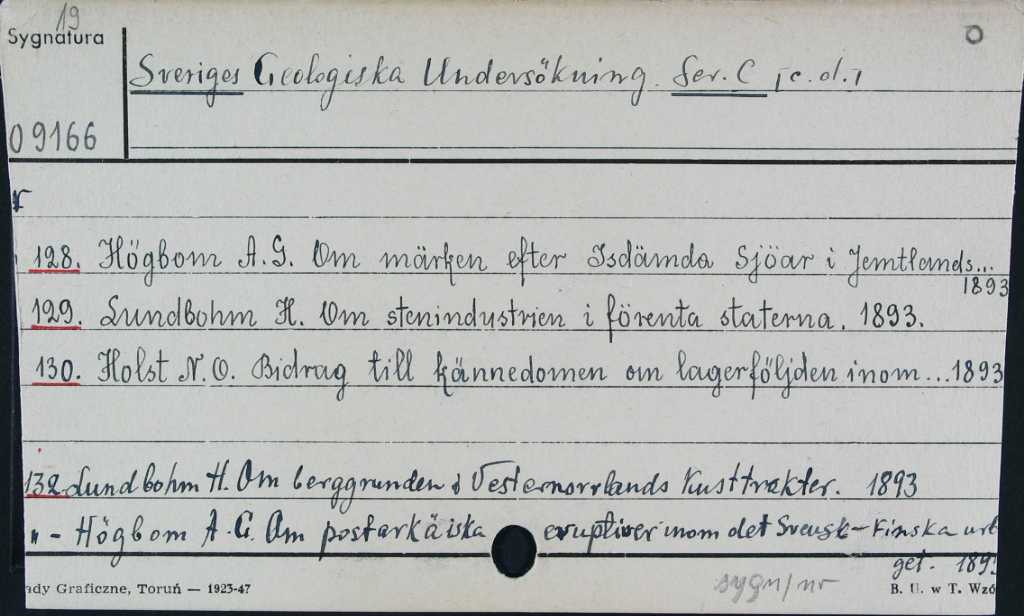 19
Sygnatura
Sveriges Geologiska Undersökning. Ser. C /c.d./
09166
128. Högbom A.G. Om märken efter Isdämda Sjöar i Jemtlands...
1893
129. Lundbohm H. Om stenindustrien i förenta staterna. 1893.
130. Holst N.O. Bidrag till kännedomen om lagerföljden inom...1893
132 Lundbohm H. Om berggrunden i Vesternorrlands Kusttrakter. 1893
" - Högbom A.G. Om postarkäiska eruptiver inom det Svensk-Finska urb
get. 189
ady Graficzne, Toruń — 1923-47
sygn/nr
B. U. w T. Wzó